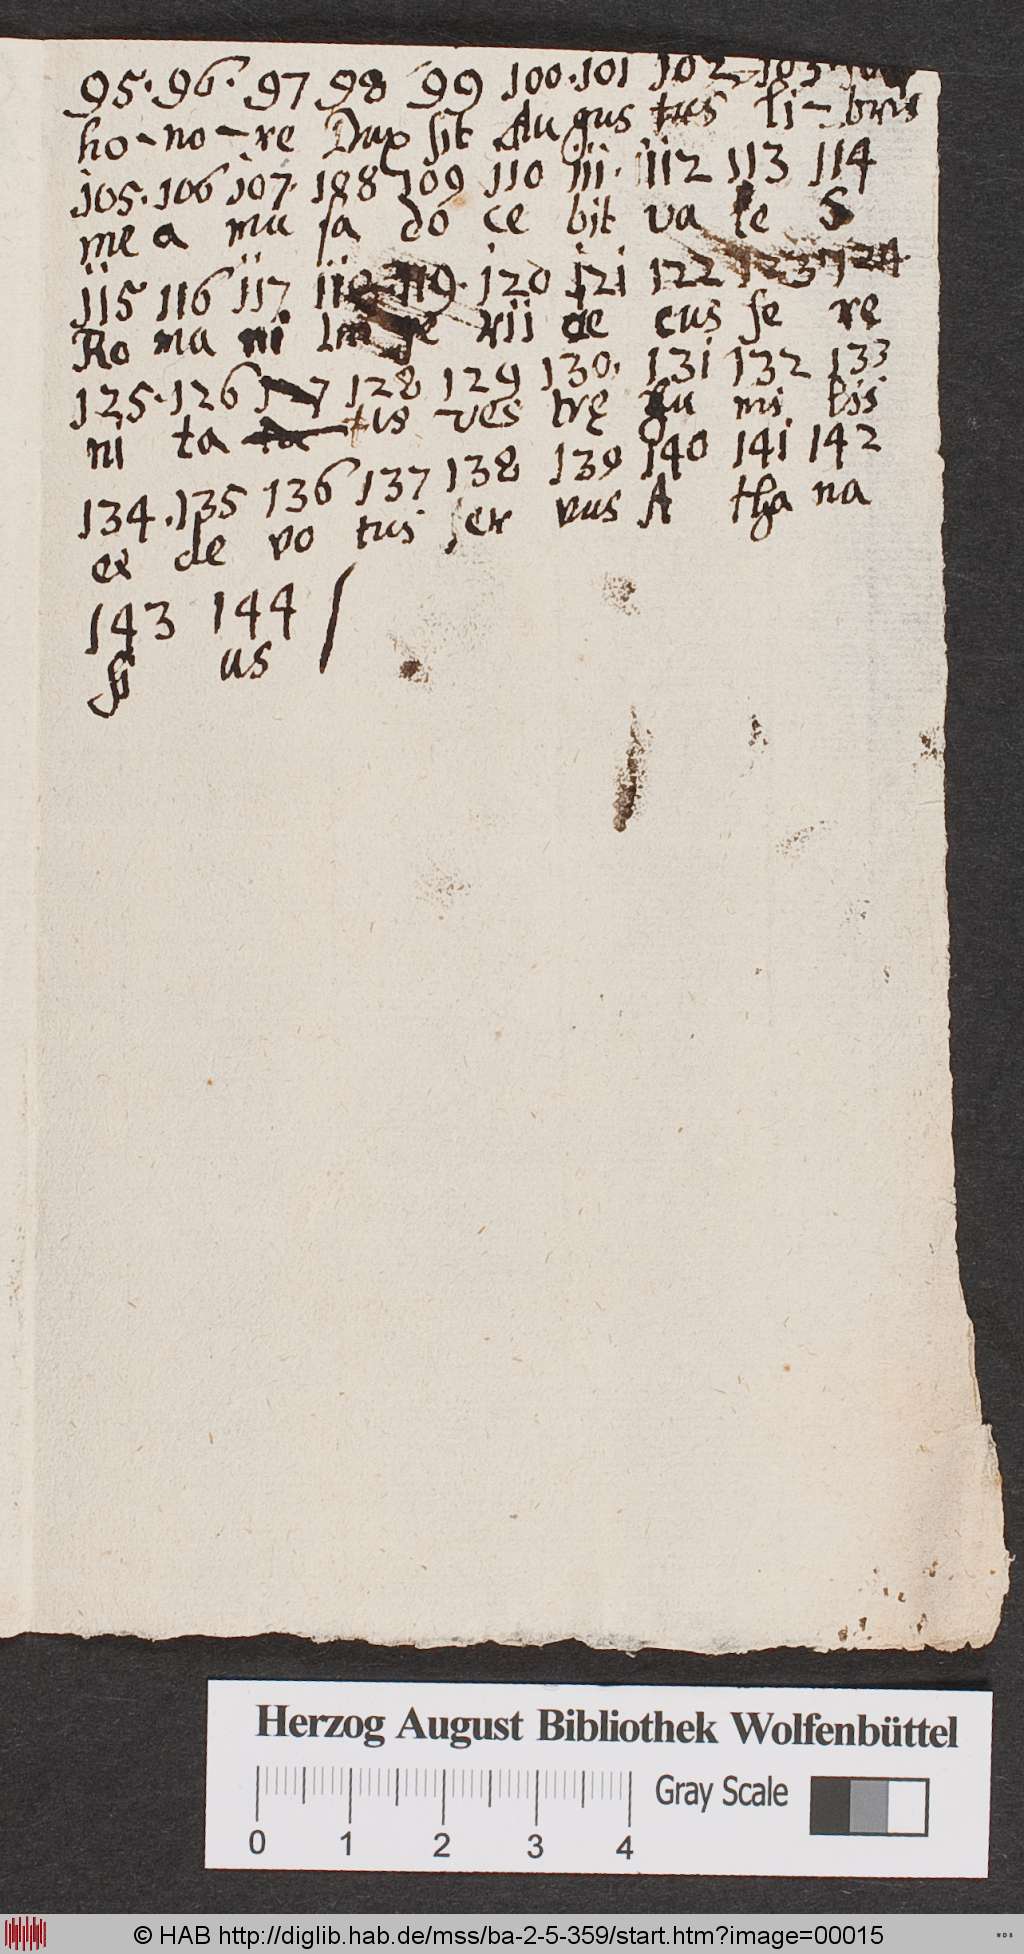 95. 96. 97 98 99 100. 101 102 103. 104
ho-no-re Dux sit Au gus tus li-bris
105. 106 107. 188 109 110 111. 112 113 114
me a mu sa do ce bit va le S
115 116 117 118 119. 120 121 122 123 124.
Ro ma ni Im pe rii de cus se rę
125. 126 127 128 129 130. 131 132 133
ni ta ta tis ves trę hu mi lis
134. 135 136 137 138 139 140 141 142
et de vo tus ser vus A tha na
143 144 /
si us
Herzog August Bibliothek Wolfenbüttel
Gray Scale
0 1 2 3 4
© HAB http://diglib.hab.de/mss/ba-2-5-359/start.htm?image=00015